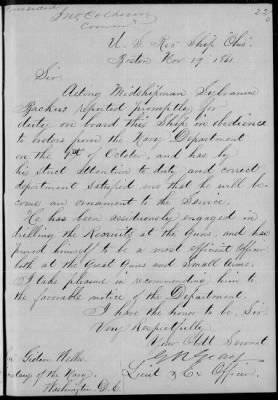 Jno. Calhoun
U. S. Rec Ship "Ohio"
Boston Nov 19" 1861.
Sir.
Acting Midshipman Sylvanus
Backus reported promptly for
duty on board this Ship in obedience
to orders from the Navy Department
on the 9th of October, and has by
his strict attention to duty and correct
deportment satisfied me that he will be-
come an ornament to the Service.
He has been assiduously engaged in
drilling the Recruits at the Guns, and has
proved himself to be a most efficient Officer
both at the Great Guns and Small Arms.
I take pleasure in recommending him to
the favorable notice of the Department.
I have the honor to be, Sir
Very Respectfully
Your Obt Servant
Lieut & Ex Officer,
Gideon Welles
of the Navy.
Washington D.C.